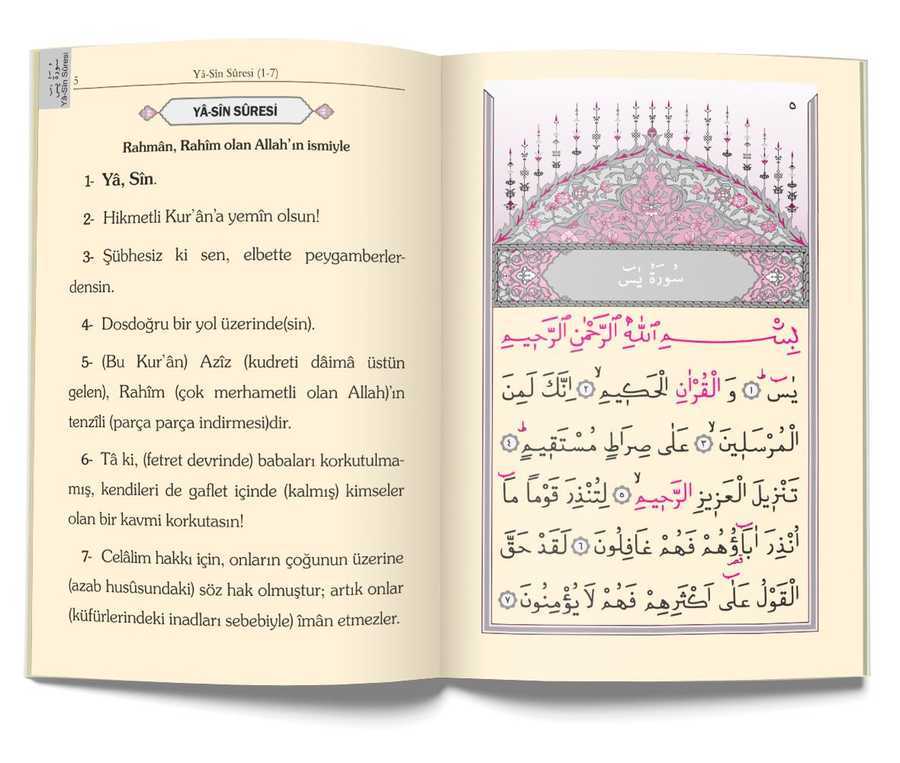 سورة يس
Yâ-Sîn Sûresi
5
Yâ-Sîn Sûresi (1-7)
YÂ-SÎN SÛRESİ
Rahmân, Rahîm olan Allah'ın ismiyle
1- Yâ, Sîn.
2- Hikmetli Kur'ân'a yemîn olsun!
3- Şübhesiz ki sen, elbette peygamberler-
densin.
4- Dosdoğru bir yol üzerinde(sin).
5- (Bu Kur'ân) Azîz (kudreti dâimâ üstün
gelen), Rahîm (çok merhametli olan Allah)'ın
tenzîli (parça parça indirmesi)dir.
6- Tâ ki, (fetret devrinde) babaları korkutulma-
mış, kendileri de gaflet içinde (kalmış) kimseler
olan bir kavmi korkutasın!
7- Celâlim hakkı için, onların çoğunun üzerine
(azab husûsundaki) söz hak olmuştur; artık onlar
(küfürlerindeki inadları sebebiyle) îmân etmezler.
٥
سُورَةُ يٰسٓ
بِسْمِ اللّٰهِ الرَّحْمٰنِ الرَّحِيمِ
يٰسٓ ۚ ﴿١﴾ وَ الْقُرْاٰنِ الْحَكِيمِ ۙ ﴿٢﴾ اِنَّكَ لَمِنَ
الْمُرْسَلِينَ ۙ ﴿٣﴾ عَلٰى صِرَاطٍ مُسْتَقِيمٍ ۜ ﴿٤﴾
تَنْزِيلَ الْعَزِيزِ الرَّحِيمِ ۙ ﴿٥﴾ لِتُنْذِرَ قَوْمًا مَٓا
اُنْذِرَ اٰبَٓاؤُهُمْ فَهُمْ غَافِلُونَ ﴿٦﴾ لَقَدْ حَقَّ
الْقَوْلُ عَلٰٓى اَكْثَرِهِمْ فَهُمْ لَا يُؤْمِنُونَ ﴿٧﴾